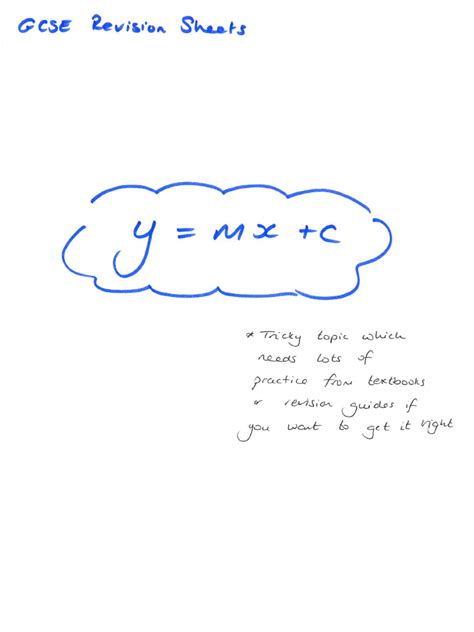 GCSE Revision Sheets
y = mx + c
* Tricky topic which
needs lots of
practice from textbooks
or revision guides if
you want to get it right